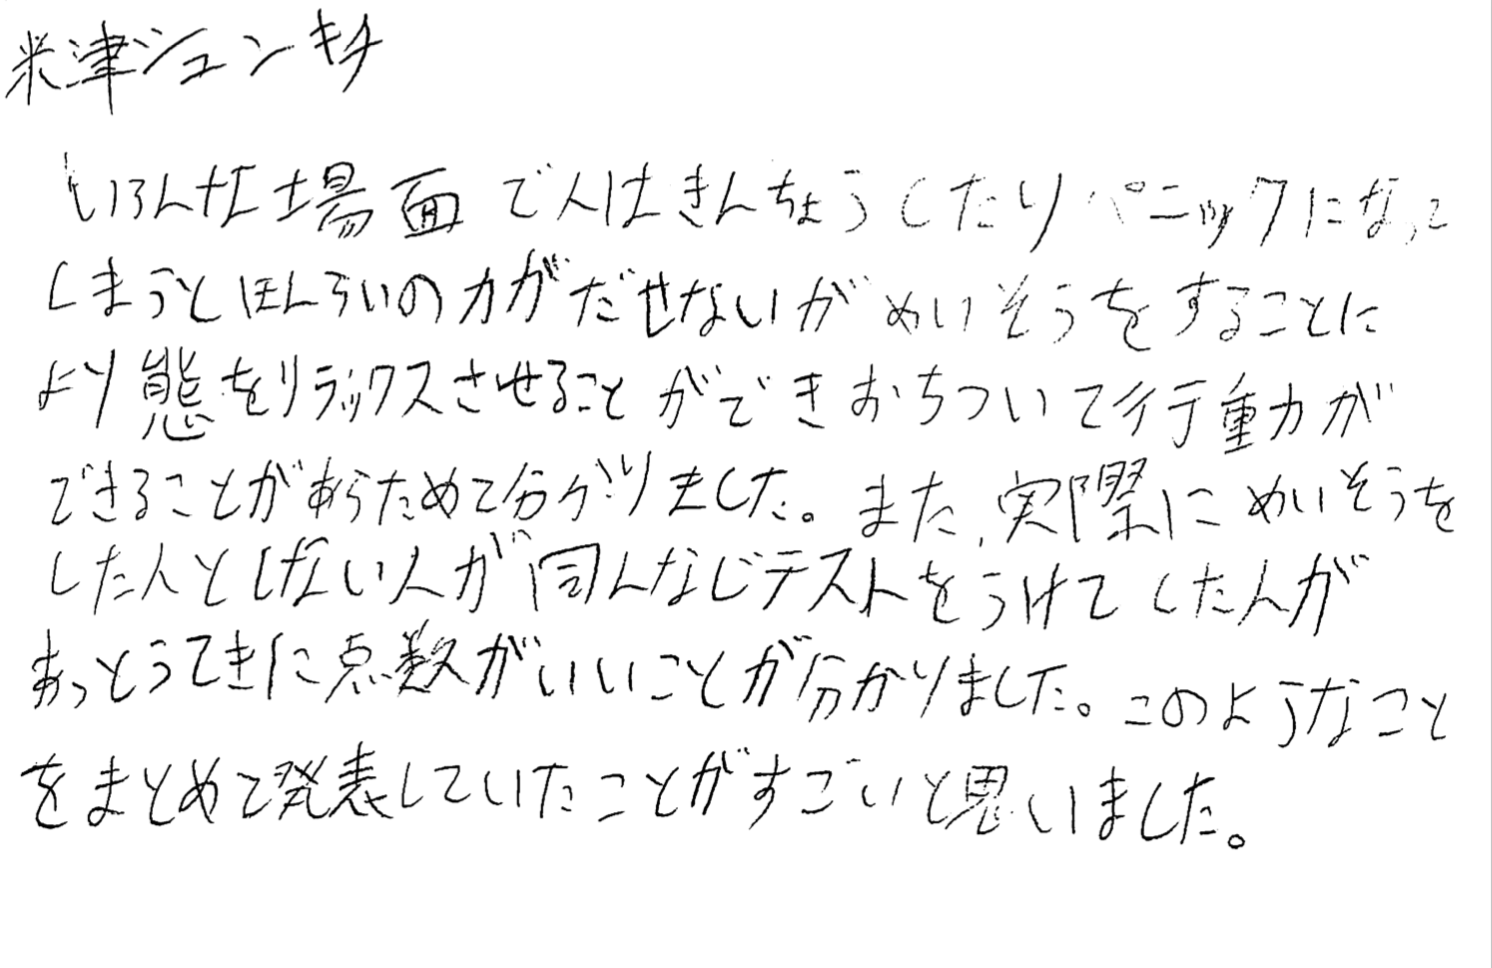 米津ジュンキチ
いろんな場面で人はきんちょうしたりパニックになって
しまうとほんらいの力がだせないがめいそうをすることに
より態をリラックスさせることができおちついて行動が
できることがあらためて分かりました。また、実際にめいそうを
した人としない人が同んなじテストをうけてした人が
あっとうてきに点数がいいことが分かりました。このようなこと
をまとめて発表していたことがすごいと思いました。